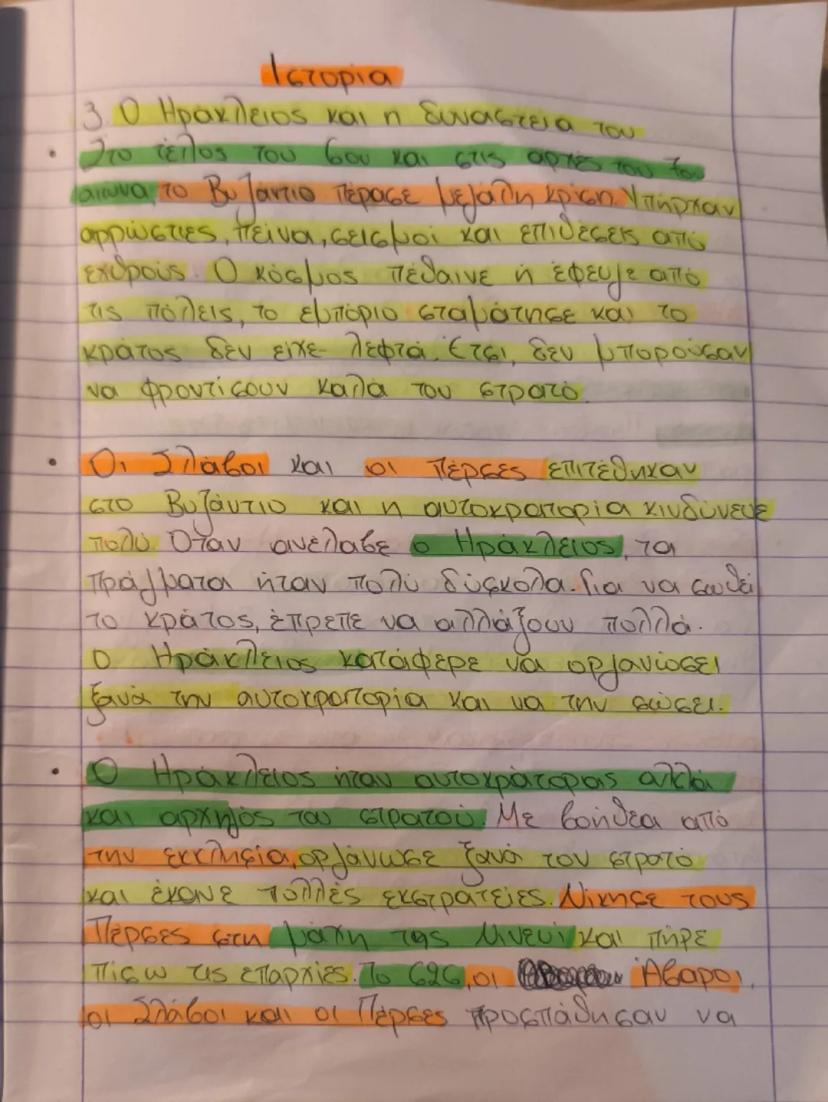 Ιστορία
3. Ο Ηράκλειος και η δυναστεία του
• Στο τέλος του 6ου και στις αρχές του 7ου
αιώνα, το Βυζάντιο πέρασε μεγάλη κρίση. Υπήρχαν
αρρώστιες, πείνα, σεισμοί και επιθέσεις από
εχθρούς. Ο κόσμος πέθαινε ή έφευγε από
τις πόλεις, το εμπόριο σταμάτησε και το
κράτος δεν είχε λεφτά. Έτσι, δεν μπορούσαν
να φροντίσουν καλά τον στρατό.
• Οι Σλάβοι και οι Πέρσες επιτέθηκαν
στο Βυζάντιο και η αυτοκρατορία κινδύνευε
πολύ Όταν ανέλαβε ο Ηράκλειος, τα
πράγματα ήταν πολύ δύσκολα. Για να σωθεί
το κράτος, έπρεπε να αλλάξουν πολλά.
Ο Ηράκλειος κατάφερε να οργανώσει
ξανά την αυτοκρατορία και να την σώσει.
• Ο Ηράκλειος ήταν αυτοκράτορας αλλά
και αρχηγός του στρατού. Με βοήθεα από
την εκκλησία, οργάνωσε ξανά τον στρατό
και έκανε πολλές εκστρατείες. Νίκησε τους
Πέρσες στη μάχη της Νινευί και πήρε
πίσω τις επαρχίες. Το 626, οι Άβαροι,
οι Σλάβοι και οι Πέρσες προσπάθησαν να